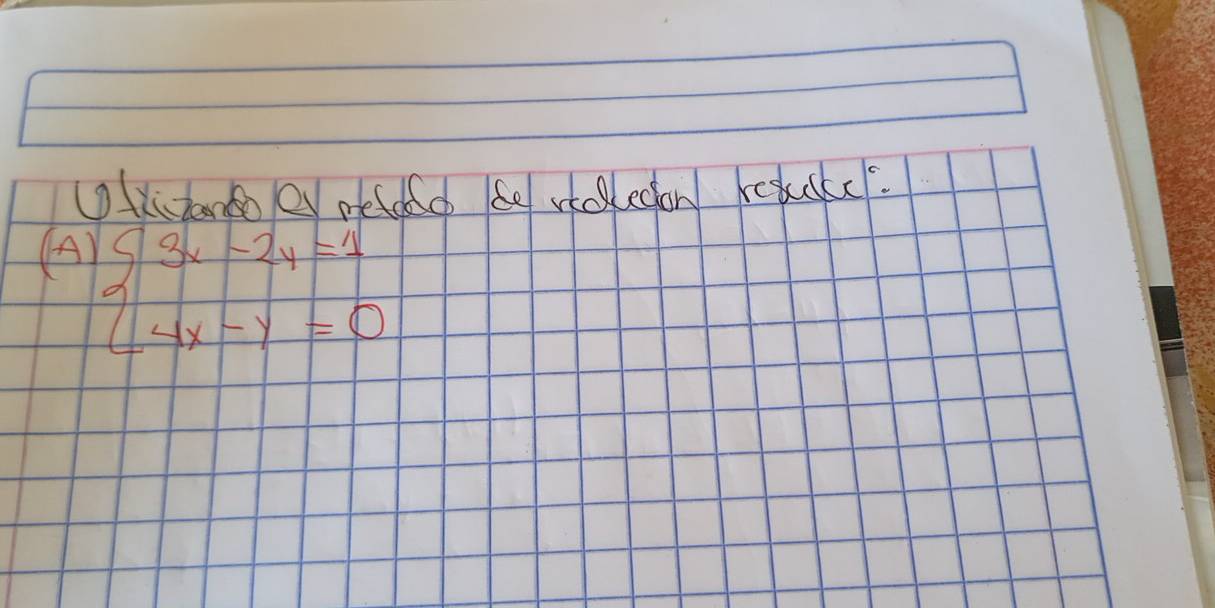 Utilizando el metodo de reduccion resuelve:
(A) { 3x - 2y = 1
4x - y = 0